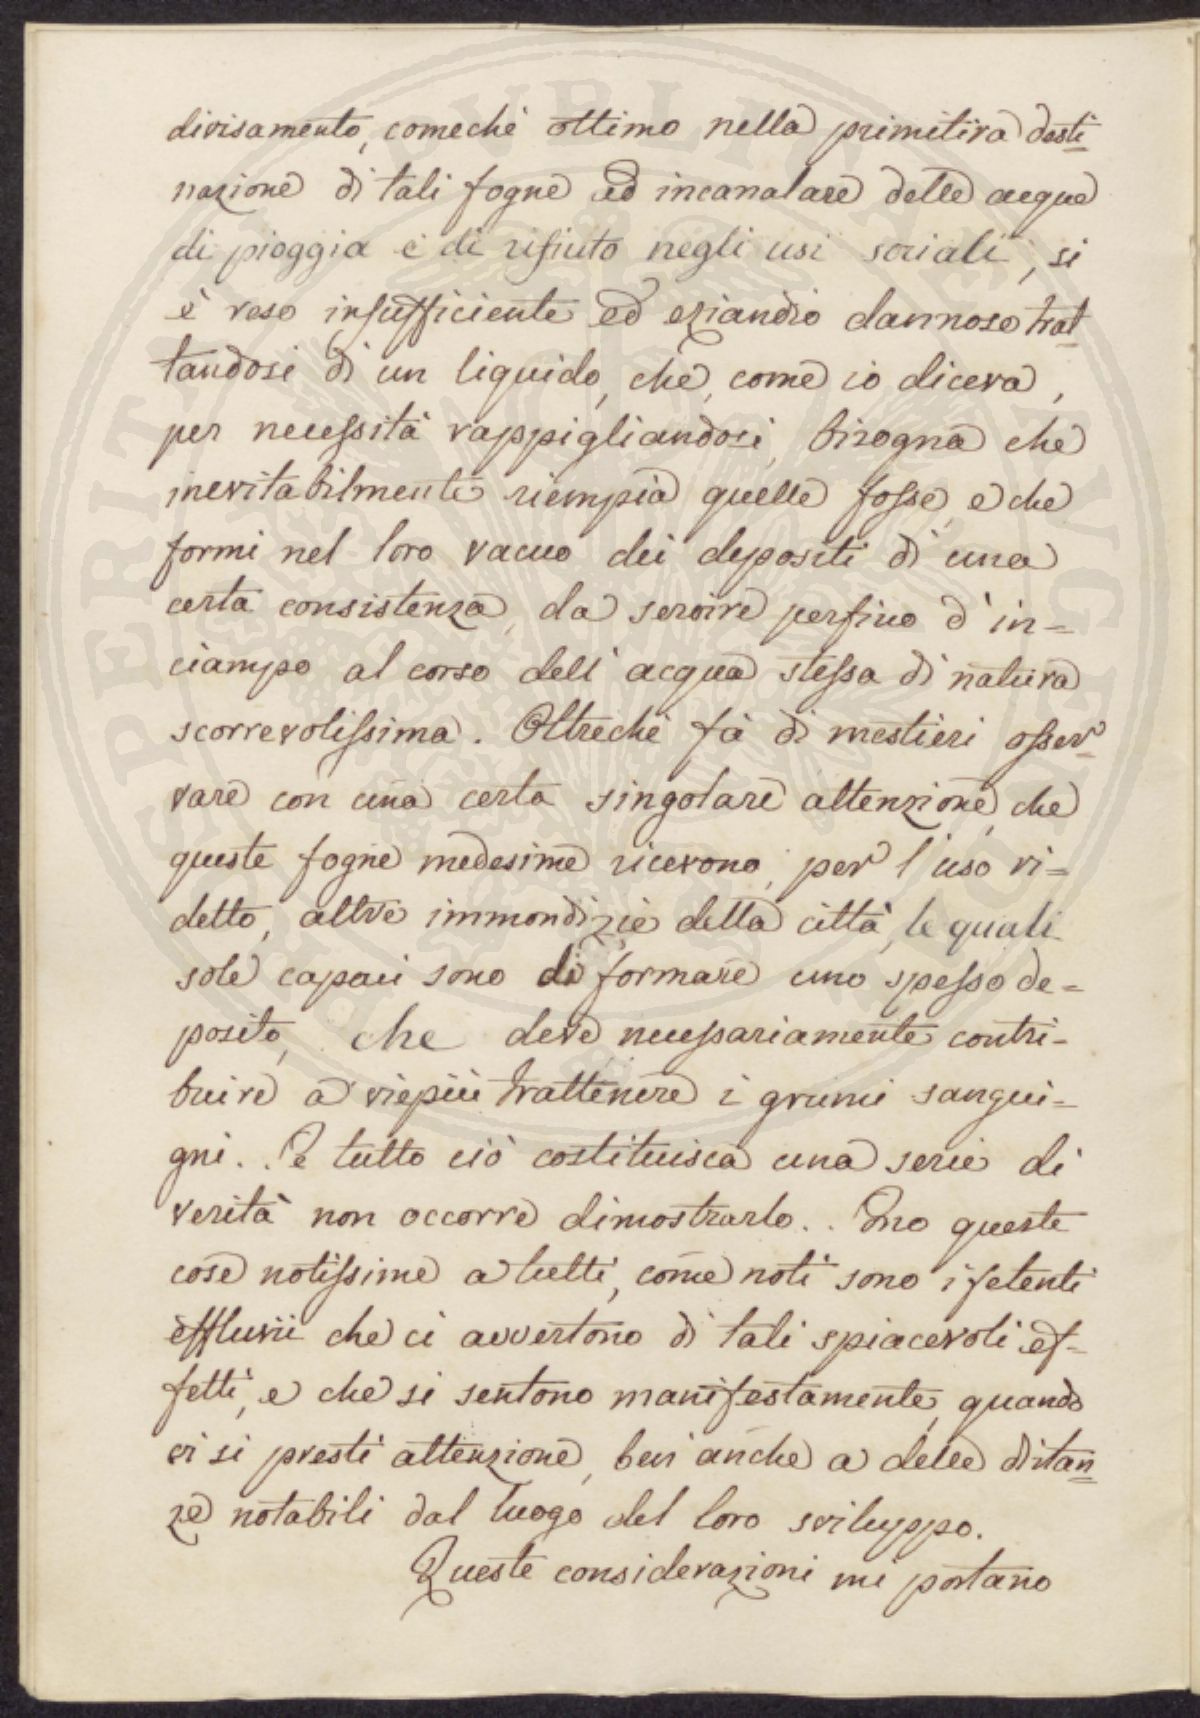 divisamento, comechè ottimo nella primitiva desti=
nazione di tali fogne ad incanalare delle acque
di pioggia e di rifiuto negli usi sociali, si
è reso insufficiente ed eziandio dannoso trat=
tandosi di un liquido, che, come io diceva,
per necessità rappigliandosi, bisogna che
inevitabilmente riempia quelle fosse, e che
formi nel loro vacuo dei depositi di una
certa consistenza, da servire perfino d'in=
ciampo al corso dell'acqua stessa di natura
scorrevolissima. Oltrechè fà di mestieri osser=
vare con una certa singolare attenzione, che
queste fogne medesime ricevono, per l'uso ri=
detto, altre immondizie della città, le quali
sole capaci sono di formare uno spesso de=
posito, che deve necessariamente contri-
buire a viepiù trattenere i grumi sangui=
gni. . E tutto ciò costituisca una serie di
verità non occorre dimostrarlo. . Sono queste
cose notissime a tutti, come noti sono i fetenti
effluvii che ci avvertono di tali spiacevoli ef=
fetti, e che si sentono manifestamente, quando
vi si presti attenzione, ben anche a delle distan=
ze notabili dal luogo del loro sviluppo.
Queste considerazioni mi portano
PVBLICAE
AVGENDAE
PROSPERITATI